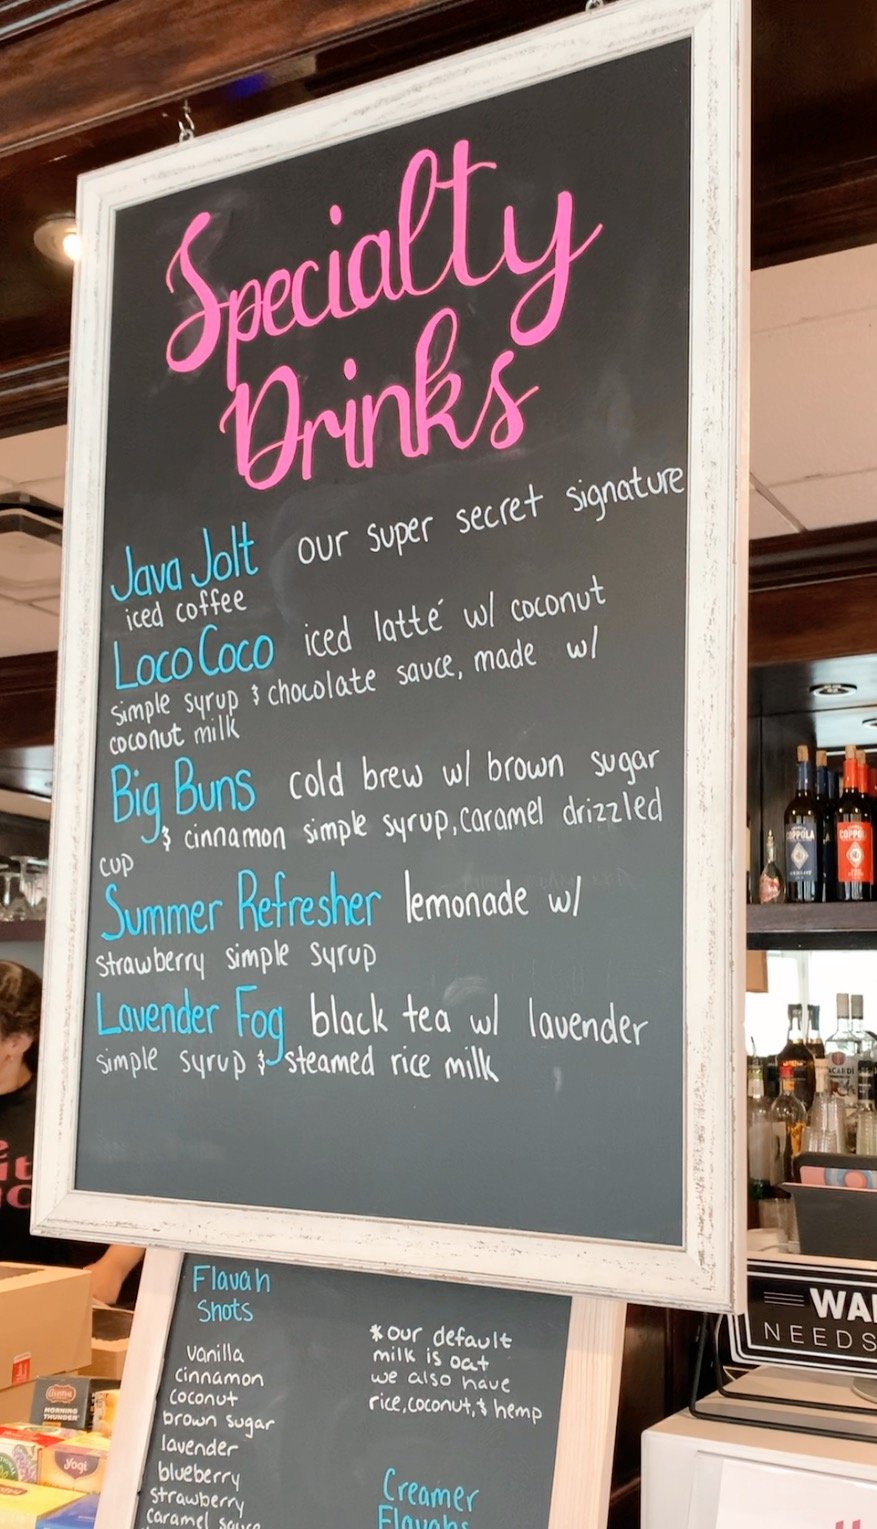 Specialty
Drinks
Java Jolt our super secret signature
iced coffee
Loco Coco iced latté w/ coconut
simple syrup & chocolate sauce, made w/
coconut milk
Big Buns cold brew w/ brown sugar
& cinnamon simple syrup, caramel drizzled
cup
Summer Refresher lemonade w/
strawberry simple syrup
Lavender Fog black tea w/ lavender
simple syrup & steamed rice milk
Flavah
Shots
vanilla
cinnamon
coconut
brown sugar
lavender
blueberry
strawberry
caramel sauce
*our default
milk is oat
we also have
rice, coconut, & hemp
Creamer
Flavahs
COPPOLA
COPPOLA
BACARDI
WA
NEEDS
MORNING
THUNDER
yogi